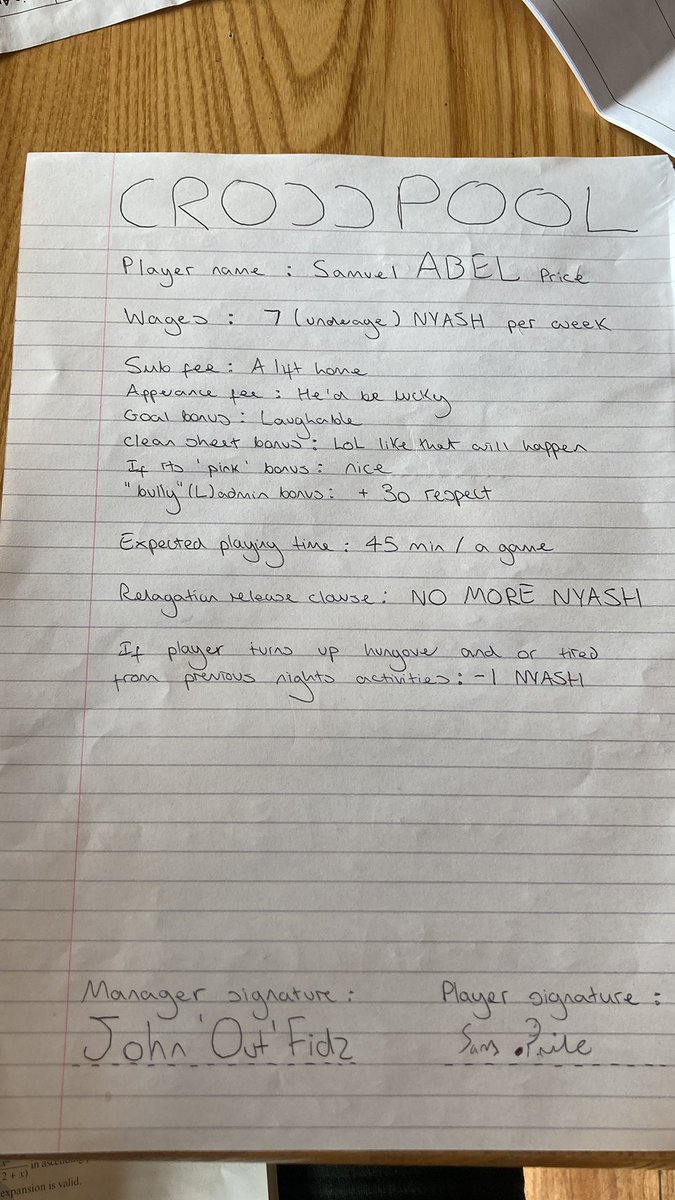 CROSSPOOL
Player name : Samuel ABEL Price
Wages : 7 (underage) NYASH per week
Sub fee : A lift home
Apperance fee : He'd be lucky
Goal bonus : Laughable
clean sheet bonus : LOL like that will happen
If its 'pink' bonus : nice
"bully"(L)admin bonus : + 30 respect
Expected playing time : 45 min / a game
Relagation release clause : NO MORE NYASH
If player turns up hungove and or tired
from previous nights activities : -1 NYASH
Manager signature :
Player signature :
John 'Out' Fidz
in
2 + x)
expansion is valid.